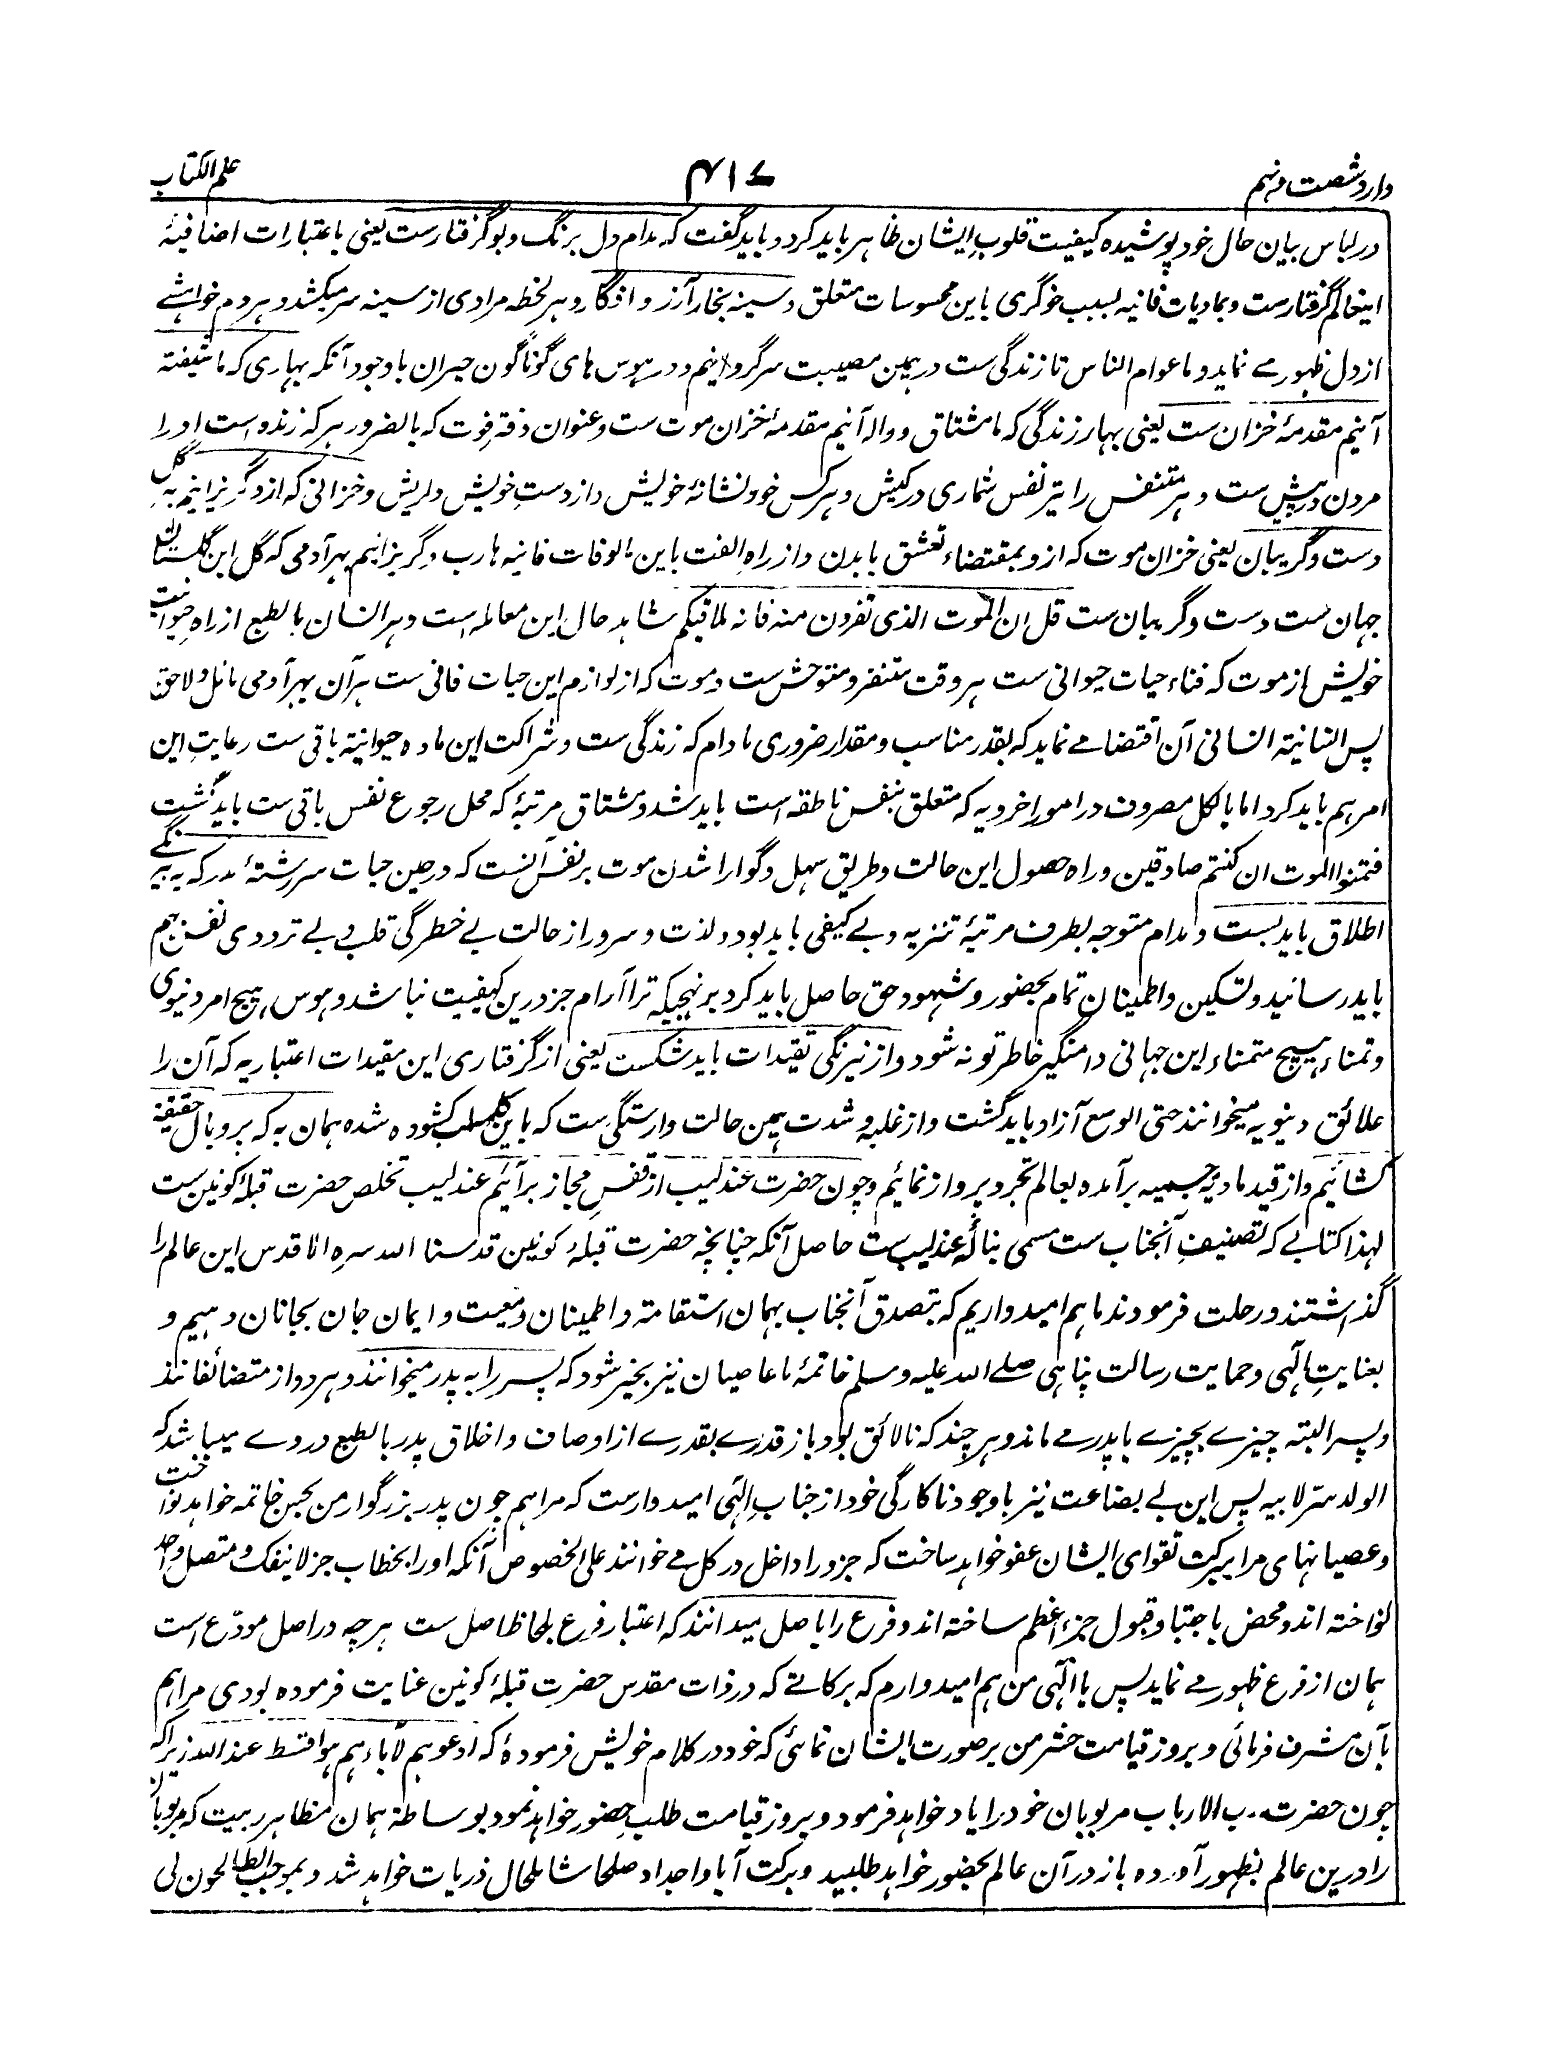 وارد شصت و نهم
۴۱۷
علم الکتاب
در لباس بیان حال خود پوشیده کیفیت قلوب ایشان ظاهر باید کرد و باید گفت که مدام دل برنگ و بو گرفتارست یعنی باعتبارات اضافیهٔ
اینعالم گرفتارست و بمادیات فانیه بسبب خوگری باین محسوسات متعلق و سینه بخار آرزو افگار و هر لخطه مرادی از سینه سر میکشد و هر دم خواهشے
از دل ظهور مے نماید و ما عوام الناس تا زندگی ست در همین مصیبت سرگردانیم و در هوس های گوناگون حیران با وجود آنکه بهاری که ما شیفته
آنیم مقدمهٔ خزان ست یعنی بهار زندگی که ما مشتاق و واله آنیم مقدمهٔ خزان موت ست و عنوان دفتر فوت که بالضرور هر که زنده است او را
مردن در پیش ست و هر متنفس را تیر نفس شماری در کیش و هر کس خود نشانهٔ خویش و از دست خویش دلریش و خزانی که از و گریزانیم به گل
دست و گریبان یعنی خزان موت که ازو بمقتضاء تعشق بابدن و از راه الفت باین مالوفات فانیه هارب و گریزانیم بهر آدمی که گل این گلستان
جهان ست دست و گریبان ست قل ان الموت الذی تفرون منه فانه ملاقیکم شاهد حال این معامله است و هر انسان بالطبع از راه حیوانیت
خویش از موت که فناء حیات حیوانی ست هر وقت متنفر و متوحش ست و موت که از لوازم این حیات فانی ست هر آن بهر آدمی مائل و لاحق
پس انسانیة انسانی آن اقتضا مے نماید که بقدر مناسب و مقدار ضروری مادام که زندگی ست و شراکت این ماده حیوانیة باقی ست رعایت این
امر هم باید کرد اما بالکل مصروف در امور اخرویه که متعلق بنفس ناطقه است باید شد و مشتاق مرتبهٔ که محل رجوع نفس باقی ست باید گشت
فتمنوا الموت ان کنتم صادقین و راه حصول این حالت و طریق سهل و گوارا شدن موت بر نفس آنست که در حین حیات سررشتهٔ مدرکه به بیرنگے
اطلاق باید بست و مدام متوجه بطرف مرتبهٔ تنزیه و بے کیفی باید بود و لذت و سرور از حالت بے خطرگی قلب و بے ترددی نفس بهم
باید رسانید و تسکین و اطمینان تمام بحضور و شهود حق حاصل باید کرد بر نهجیکه ترا آرام جز درین کیفیت نباشد و هوس هیچ امر دنیوی
و تمناء هیچ متمناء این جهانی دامنگیر خاطر تو نه شود و از نیرنگی تقیدات باید شکست یعنی از گرفتاری این مقیدات اعتباریه که آن را
علائق دنیویه میخوانند حتی الوسع آزاد باید گشت و از غلبه و شدت همین حالت وارستگی ست که باین کلمه لب کشوده شده همان به که پر و بال حقیقة
کشائیم و از قید مادیه جسمیه برآمده بعالم تجرد پرواز نمائیم و چون حضرت عندلیب از قفس مجاز برآئیم عندلیب تخلص حضرت قبلهٔ کونین ست
لهذا کتابے که تصنیف آنجناب ست مسمی بنالهٔ عندلیب ست حاصل آنکه چنانچه حضرت قبلهٔ کونین قدسنا الله سره الاقدس این عالم را
گذاشتند و رحلت فرمودند ما هم امیدواریم که بتصدق آنجناب بهمان استقامة و اطمینان و معیت و ایمان جان بجانان دهیم و
بعنایت الٓهی و حمایت رسالت پناهی صلے الله علیه وسلم خاتمهٔ ما عاصیان نیز بخیر شود که پسر را به پدر میخوانند و هر دو از متضائفانند
و پسر البته چیزے بچیزے با پدر مے ماند و هر چند که نالائق بود باز قدرے بقدرے از اوصاف و اخلاق پدر بالطبع در وے میباشد که
الولد سر لابیه پس این بے بضاعت نیز با وجود ناکارگی خود از جناب الٓهی امیدوارست که مرا هم چون پدر بزرگوار من بحسن خاتمه خواهد نواخت
و عصیانهای مرا ببرکت تقوای ایشان عفو خواهد ساخت که جزو را داخل در کل مے خوانند علی الخصوص آنکه او را بخطاب جز لاینفک و متصل واحد
نواخته اند و محض باجتبا و قبول جزء اعظم ساخته اند و فرع را باصل میدانند که اعتبار فرع بلحاظ اصل ست هر چه در اصل مودّع است
همان از فرع ظهور مے نماید پس باالٓهی من هم امیدوارم که برکاتے که در ذات مقدس حضرت قبلهٔ کونین عنایت فرموده بودی مرا هم
بآن مشرف فرمائی و بروز قیامت حشر من بر صورت ایشان نمائی که خود در کلام خویش فرمودهٔ که ادعوهم لآباءهم هو اقسط عند الله زیرا که
چون حضرت رب الارباب مربوبان خود را یاد خواهد فرمود و بروز قیامت طلب حضور خواهد نمود بوساطة همان مظاهر ربیت که مربوبان
را درین عالم بظهور آورده باز در آن عالم بحضور خواهد طلبید و برکت آبا و اجداد صلحا شامل حال ذریات خواهد شد و بموجب الطالحون لی